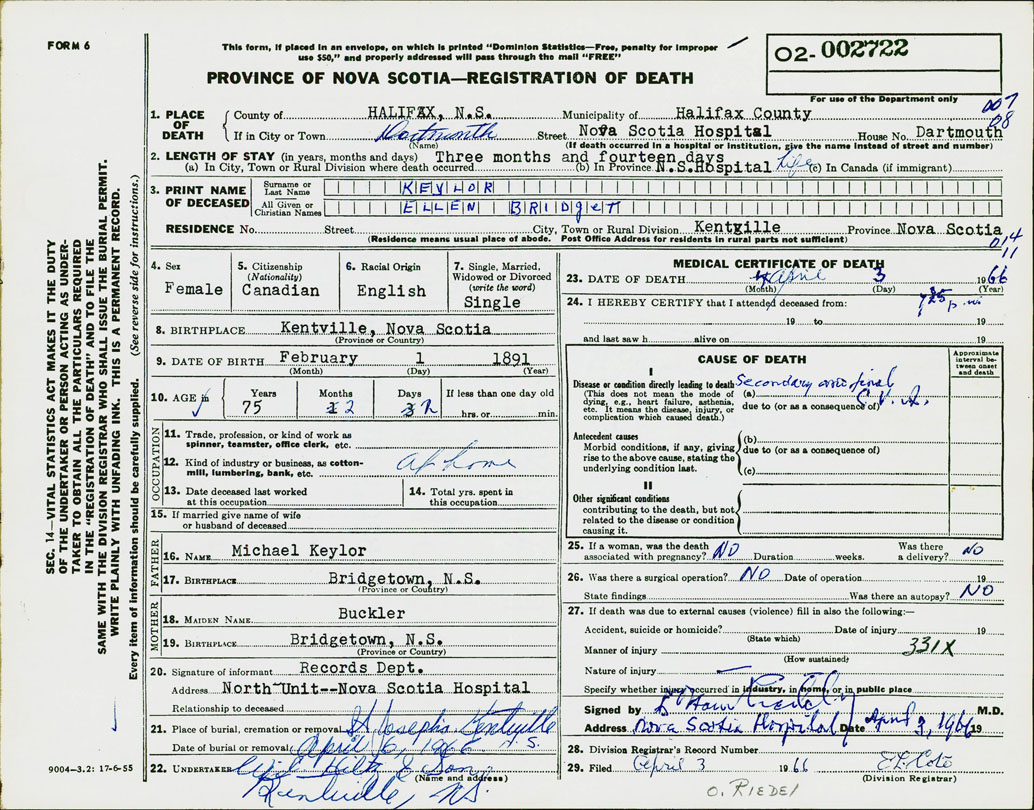 FORM 6
This form, if placed in an envelope, on which is printed "Dominion Statistics—Free, penalty for improper
use $50," and properly addressed will pass through the mail "FREE"
02-002722
For use of the Department only
PROVINCE OF NOVA SCOTIA—REGISTRATION OF DEATH
007
08
1. PLACE OF DEATH County of HALIFAX, N.S. Municipality of Halifax County
If in City or Town Dartmouth Street Nova Scotia Hospital House No. Dartmouth
(Name) (If death occurred in a hospital or institution, give the name instead of street and number)
2. LENGTH OF STAY (in years, months and days) Three months and fourteen days
(a) In City, Town or Rural Division where death occurred (b) In Province N.S.Hospital Life (c) In Canada (if immigrant)
3. PRINT NAME OF DECEASED
Surname or Last Name KEYLOR
All Given or Christian Names ELLEN BRIDgET
RESIDENCE No. Street City, Town or Rural Division Kentville Province Nova Scotia
(Residence means usual place of abode. Post Office Address for residents in rural parts not sufficient)
014
11
4. Sex Female
5. Citizenship (Nationality) Canadian
6. Racial Origin English
7. Single, Married, Widowed or Divorced (write the word) Single
8. BIRTHPLACE Kentville, Nova Scotia
(Province or Country)
9. DATE OF BIRTH February 1 1891
(Month) (Day) (Year)
10. AGE in Years Months Days If less than one day old
75 2 2 hrs. or min.
OCCUPATION
11. Trade, profession, or kind of work as
spinner, teamster, office clerk, etc.
12. Kind of industry or business, as cotton-
mill, lumbering, bank, etc. at home
13. Date deceased last worked
at this occupation
14. Total yrs. spent in
this occupation
15. If married give name of wife
or husband of deceased
FATHER
16. NAME Michael Keylor
17. BIRTHPLACE Bridgetown, N.S.
(Province or Country)
MOTHER
18. MAIDEN NAME Buckler
19. BIRTHPLACE Bridgetown, N.S.
(Province or Country)
20. Signature of informant Records Dept.
Address North Unit--Nova Scotia Hospital
Relationship to deceased
21. Place of burial, cremation or removal St Josephs Kentville
N.S.
Date of burial or removal April 6, 1966
22. UNDERTAKER & Son
(Name and address)
Kentville, NS.
MEDICAL CERTIFICATE OF DEATH
23. DATE OF DEATH April 3 1966
(Month) (Day) (Year)
24. I HEREBY CERTIFY that I attended deceased from:
19 to 19
and last saw h alive on 19
CAUSE OF DEATH
Approximate interval between onset and death
I
Disease or condition directly leading to death
(This does not mean the mode of
dying, e.g., heart failure, asthenia,
etc. It means the disease, injury, or
complication which caused death.)
(a) Secondary and final
C.V.A.
due to (or as a consequence of)
Antecedent causes
Morbid conditions, if any, giving
rise to the above cause, stating the
underlying condition last.
(b)
due to (or as a consequence of)
(c)
II
Other significant conditions
contributing to the death, but not
related to the disease or condition
causing it.
25. If a woman, was the death
associated with pregnancy? NO Duration weeks. Was there
a delivery? NO
26. Was there a surgical operation? NO Date of operation 19
State findings Was there an autopsy? NO
27. If death was due to external causes (violence) fill in also the following:—
Accident, suicide or homicide? Date of injury 19
(State which)
Manner of injury 331X
(How sustained)
Nature of injury
Specify whether injury occurred in industry, in home, or in public place
Signed by M.D.
Address Nova Scotia Hospital Date April 3, 1966 19
28. Division Registrar's Record Number
29. Filed April 3 1966
(Division Registrar)
O. RIEDEL
SEC. 14—VITAL STATISTICS ACT MAKES IT THE DUTY
OF THE UNDERTAKER OR PERSON ACTING AS UNDER-
TAKER TO OBTAIN ALL THE PARTICULARS REQUIRED
IN THE "REGISTRATION OF DEATH" AND TO FILE THE
SAME WITH THE DIVISION REGISTRAR WHO SHALL ISSUE THE BURIAL PERMIT.
WRITE PLAINLY WITH UNFADING INK. THIS IS A PERMANENT RECORD.
Every item of information should be carefully supplied. (See reverse side for instructions.)
9004-3.2: 17-6-55